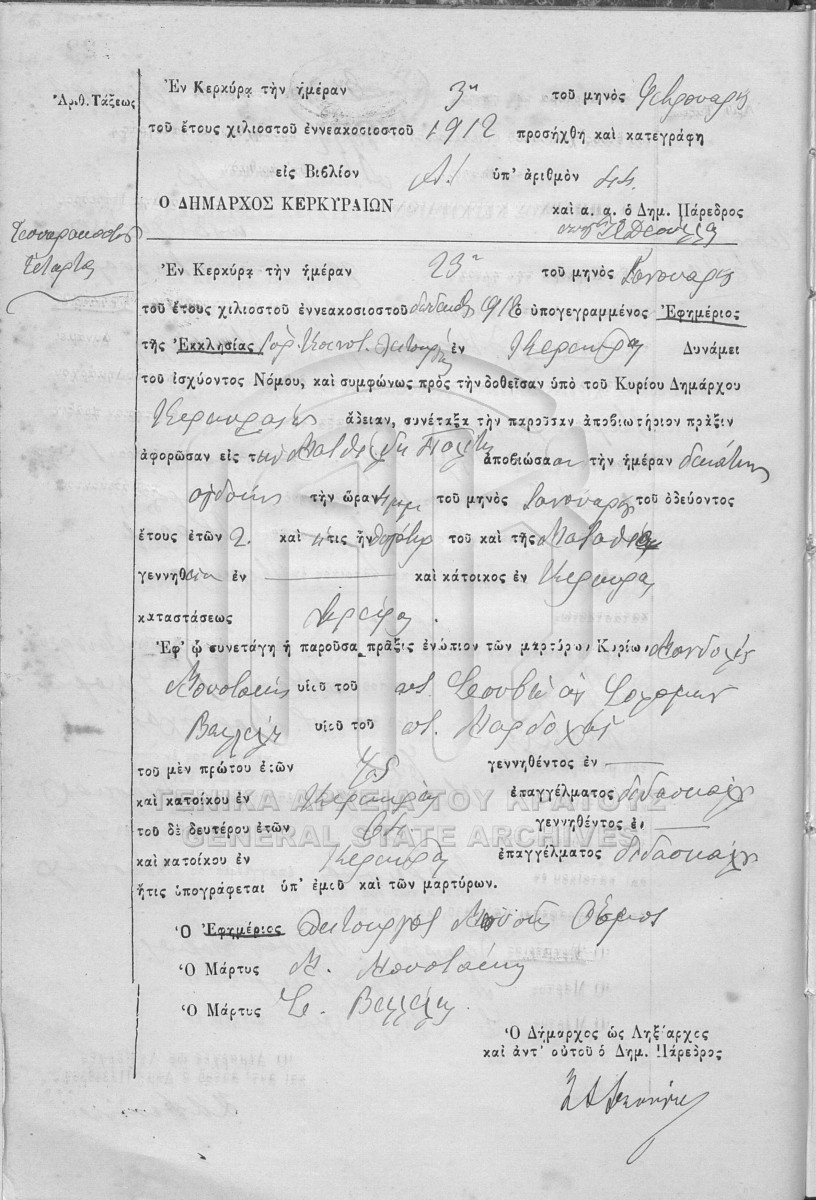 Ἀριθ. Τάξεως
Ἐν Κερκύρᾳ τὴν ἡμέραν 3η τοῦ μηνὸς Φεβρουαρίου
τοῦ ἔτους χιλιοστοῦ ἐννεακοσιοστοῦ 1912 προσήχθη καὶ κατεγράφη
εἰς Βιβλίον Α! ὑπ' ἀριθμὸν 44
Ὁ ΔΗΜΑΡΧΟΣ ΚΕΡΚΥΡΑΙΩΝ
καὶ α. α. ὁ Δημ. Πάρεδρος
Τεσσαρακοστή
Τετάρτη
Ἐν Κερκύρᾳ τὴν ἡμέραν 23η τοῦ μηνὸς Ἰανουαρίου
τοῦ ἔτους χιλιοστοῦ ἐννεακοσιοστοῦ δωδεκάτου 1912 ὁ ὑπογεγραμμένος Ἐφημέριος
τῆς Ἐκκλησίας Ἰσρ. Κοινοτ. ἐν Κερκύρᾳ Δυνάμει
τοῦ ἰσχύοντος Νόμου, καὶ συμφώνως πρὸς τὴν δοθεῖσαν ὑπὸ τοῦ Κυρίου Δημάρχου
Κερκυραίων ἄδειαν, συνέταξα τὴν παροῦσαν ἀποβιωτήριον πρᾶξιν
ἀφορῶσαν εἰς τὴν Ματθίλδη Πολίτη ἀποβιώσασαν τὴν ἡμέραν δεκάτην
ὀγδόην τὴν ὥραν τοῦ μηνὸς Ἰανουαρίου τοῦ ὁδεύοντος
ἔτους ἐτῶν 2. καὶ ἥτις ἦν θυγάτηρ τοῦ καὶ τῆς Ματαθία
γεννηθεῖσα ἐν καὶ κάτοικος ἐν Κερκύρᾳ
καταστάσεως
Ἐφ' ᾧ συνετάγη ἡ παροῦσα πρᾶξις ἐνώπιον τῶν μαρτύρων Κυρίων
Μουστάκης υἱοῦ τοῦ ποτ. καὶ Σολομών
Βελλέλη υἱοῦ τοῦ ποτ. Μαρδοχάη
τοῦ μὲν πρώτου ἐτῶν γεννηθέντος ἐν
καὶ κατοίκου ἐν Κερκύρᾳ ἐπαγγέλματος διδασκάλου
τοῦ δὲ δευτέρου ἐτῶν γεννηθέντος ἐν
καὶ κατοίκου ἐν Κερκύρᾳ ἐπαγγέλματος διδασκάλου
ἥτις ὑπογράφεται ὑπ' ἐμοῦ καὶ τῶν μαρτύρων.
Ὁ Ἐφημέριος Λειτουργὸς Μωυσῆς Όσμος
Ὁ Μάρτυς Μ. Μουστάκης
Ὁ Μάρτυς Σ. Βελλέλης
Ὁ Δήμαρχος ὡς Ληξίαρχος
καὶ ἀντ' αὐτοῦ ὁ Δημ. Πάρεδρος
ΓΕΝΙΚΑ ΑΡΧΕΙΑ ΤΟΥ ΚΡΑΤΟΥΣ
GENERAL STATE ARCHIVES